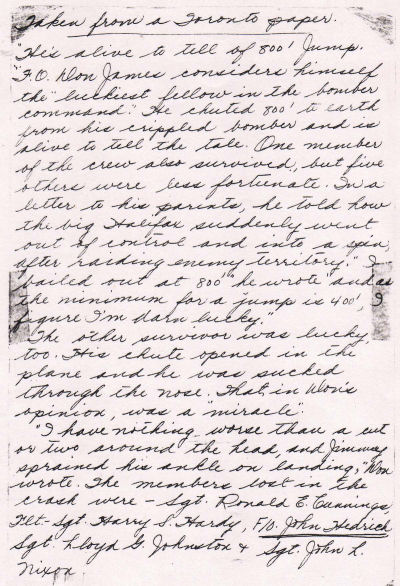 Taken from a Toronto paper.
"He's alive to tell of 800' Jump.
F.O. Don James considers himself
the "luckiest fellow in the bomber
command." He chuted 800' to earth
from his crippled bomber and is
alive to tell the tale. One member
of the crew also survived, but five
others were less fortunate. In a
letter to his parints, he told how
the big Halifax suddenly went
out of control and into a spin,
after raiding enemy territory." I
bailed out at 800'" he wrote "and as
the minimum for a jump is 400', I
figure I'm darn lucky."
"The other survivor was lucky,
too. His chute opened in the
plane and he was sucked
through the nose. That, in Don's
opinion, was a miracle".
"I have nothing worse than a cut
or two around the head, and Jimmey
sprained his ankle on landing", Don
wrote. The members lost in the
crash were - Sgt. Ronald E. Cunnings,
Flt-Sgt. Harry S. Hardy, F/O. John Hedrick
Sgt. Lloyd G. Johnston & Sgt. John L.
Nixon.